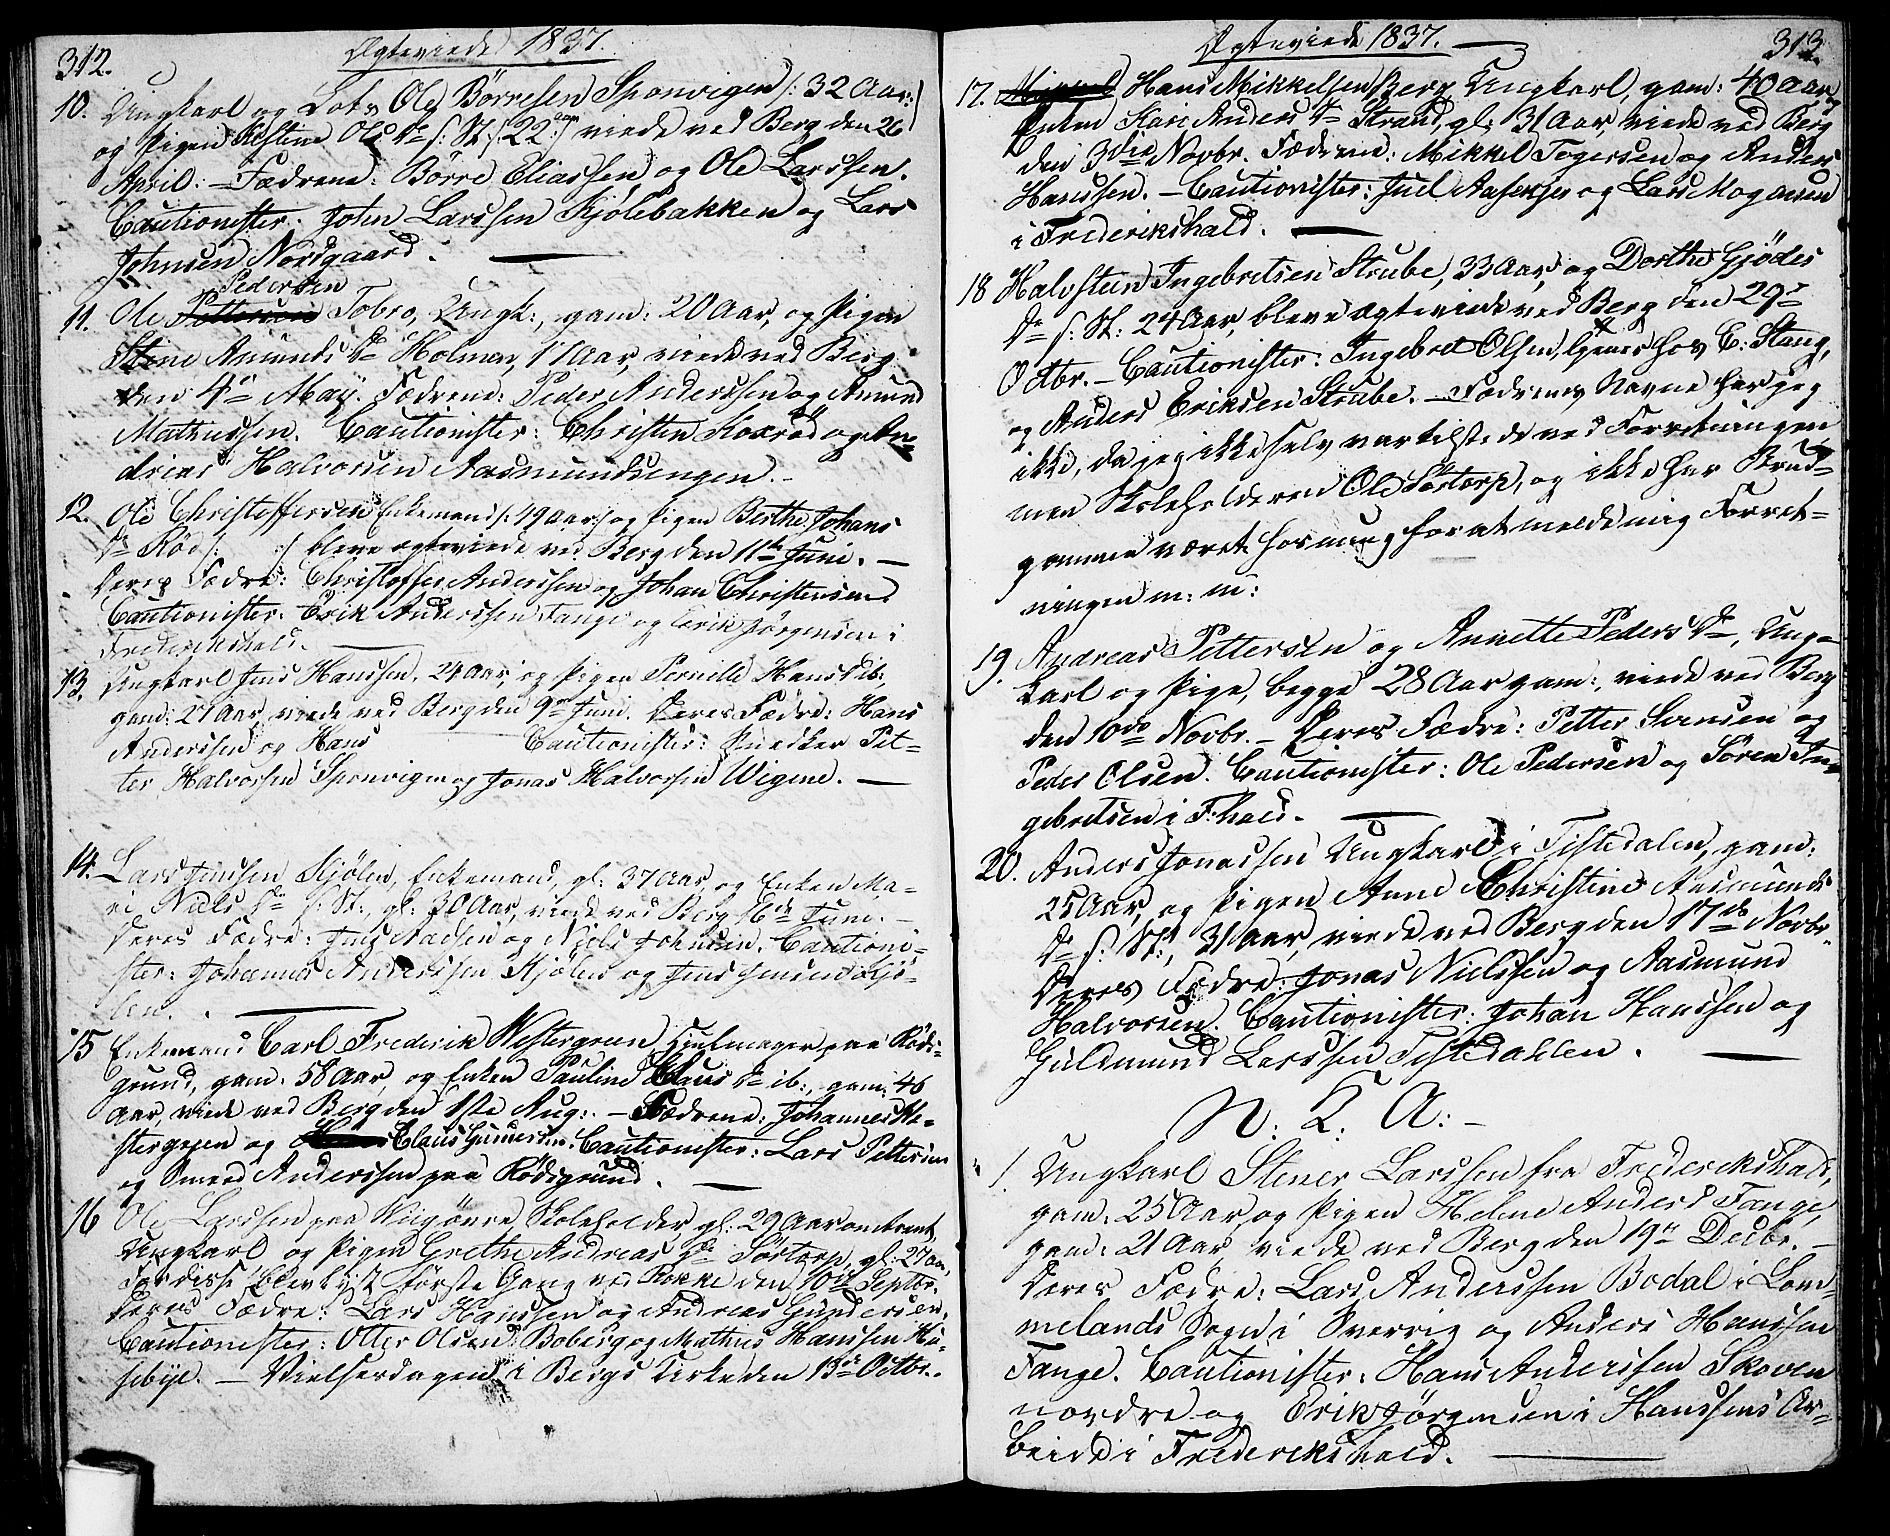 312.
Ægteviede 1837.
10. Ungkarl og Lods Ole Börresen Sponvigen /: 32 Aar :/
og Pigen Kistine Ols Dr s: St: /: 22 Aar :/ viede ved Berg den 26
April. – Fædrene: Börre Eliassen og Ole Larssen.
Cautionister: John Larssen Kjölebakken og Lars
Johnsen Nordgaard.
Pedersen
11. Ole Pettersen Tobro, Ungk:, gam: 20 Aar, og Pigen
Stine Amunds Dr Holmen, 17 Aar, viede ved Berg
den 4de May. Fædrene: Peder Anderssen og Amund
Mathissen. Cautionister: Christen Koxröd og An-
dreas Halvorsen Aasmundsengen. –
12. Ole Christoffersen Enkemand /: 49 Aar :/ og Pigen Berthe Johans
Dr Röd /: :/ bleve ægteviede ved Berg den 11te Juni. –
Deres Fædre: Christoffer Anderssen og Johan Christensen
Cautionister: Erik Anderssen Tange og Erik Jörgensen i
Frederikshald.
13. Ungkarl Jens Hanssen, 24 Aar, og Pigen Pernille Hans D ib:
gam: 27 Aar, viede ved Berg den 9de Juni. Deres Fædre: Hans
Anderssen og Hans Cautionister: Snedker Pet-
ter Halvorsen Sponvigen og Jonas Halvorsen Wigene. –
14. Lars Jensen Kjölen, Enkemand, gl: 37 Aar, og Enken Ma-
ri Niels Dr s: St:, gl: 30 Aar, viede ved Berg 16de Juni. –
Deres Fædre: Jens Madsen og Niels Johnsen. Cautioni-
ster: Johannes Anderssen Kjölen og Jens Jensen Kjö-
len.
15 Enkemand Carl Frederik Westergreen Hjulmager paa Röds-
grund, gam: 58 Aar, og Enken Pauline Claus Dr ib:, gam: 46
Aar, viede ved Berg den 1ste Aug: – Fædrene: Johannes We-
stergreen og Claus Gundersen. Cautionister: Lars Pettersen
og Smed Anderssen paa Rödsgrund.
16 Ole Larssen paa Skoleholder, gl: 29 Aar omtrent,
Ungkarl og Pigen Grethe Andreas Dr Sörtorp, gl: 27 Aar,
For disse blev lyst förste Gang ved Rokke den 10de Septbr.
Deres Fædre: Lars Hanssen og Andreas Gundersen,
Cautionister: Otter Olsen Boberg og Mathis Hanssen Hu-
sebye. – Vielsesdagen i Bergs Kirke den 13de Octbr.
Ægteviede 1837.
313.
17. Hans Mikkelsen Berg, Ungkarl, gam: 40 Aar, og
Enken Kari Anders Dr Strand, gl: 31 Aar, viede ved Berg
den 3die Novbr. Fædrene: Mikkel Togersen og Anders
Hanssen. – Cautionister: Juel Aasensen og Lars Mogensen
i Frederikshald.
18 Halvsteen Ingebretsen Strube, 33 Aar, og Dorthe Gjödes
Dr s: St: 24 Aar, bleve ægteviede ved Berg den 29de
Octbr. – Cautionister: Ingebret Olsen, tjener hos E: Stang,
og Anders Eriksen Strube. – Fædrenes Navne har jeg
ikke, da jeg ikke selv var tilstede ved Forretningen
men Skoleholderen Ole Sörtorp, og ikke har Brud-
gommen været hos mig for at melde mig Forret-
ningen m: m:
19. Andreas Pettersen og Annette Peders Dr, Ung-
karl og Pige, begge 28 Aar gam:, viede ved Berg
den 10de Novbr. – Deres Fædre: Petter Svensen og
Peder Olsen. Cautionister: Ole Pedersen og Sören In-
gebretsen i F:hald.
20. Anders Jonassen Ungkarl i Tistedalen, gam:
25 Aar, og Pigen Anne Christine Aasmunds
Dr s: St:, 31 Aar, viede ved Berg den 17de Novbr.
Deres Fædre: Jonas Nielssen og Aasmund
Halvorsen. Cautionister: Johan Hanssen og
Guldmund Larssen Tistedahlen.
N: K: A: –
1. Ungkarl Stener Larssen fra Frederikshald,
gam: 25 Aar, og Pigen Helene Anders D Tange,
gam: 21 Aar viede ved Berg den 19de Decbr. –
Deres Fædre: Lars Anderssen Bodal i Lom-
melands Sogn i Sverrig og Anders Hanssen
Tange. Cautionister: Hans Anderssen Skoven
nordre og Erik Jörgensen i Hanssens Ar-
beide i Frederikshald.